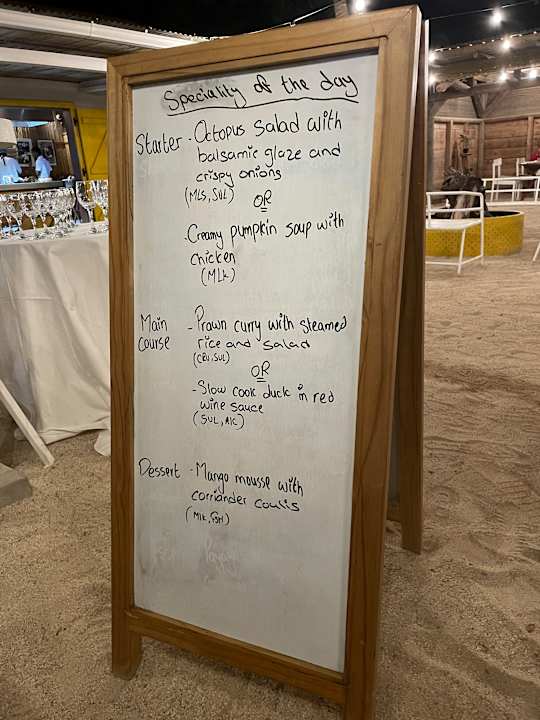 Speciality of the day
Starter - Octopus Salad with
balsamic glaze and
crispy onions
(MLS, SUL) OR
- Creamy pumpkin soup with
chicken
(MLK)
Main - Prawn curry with steamed
course rice and salad
(CRU, SUL)
OR
- Slow cook duck in red
wine sauce
(SUL, AlC)
Dessert - Mango mousse with
corriander coulis
(MlK, FSH)